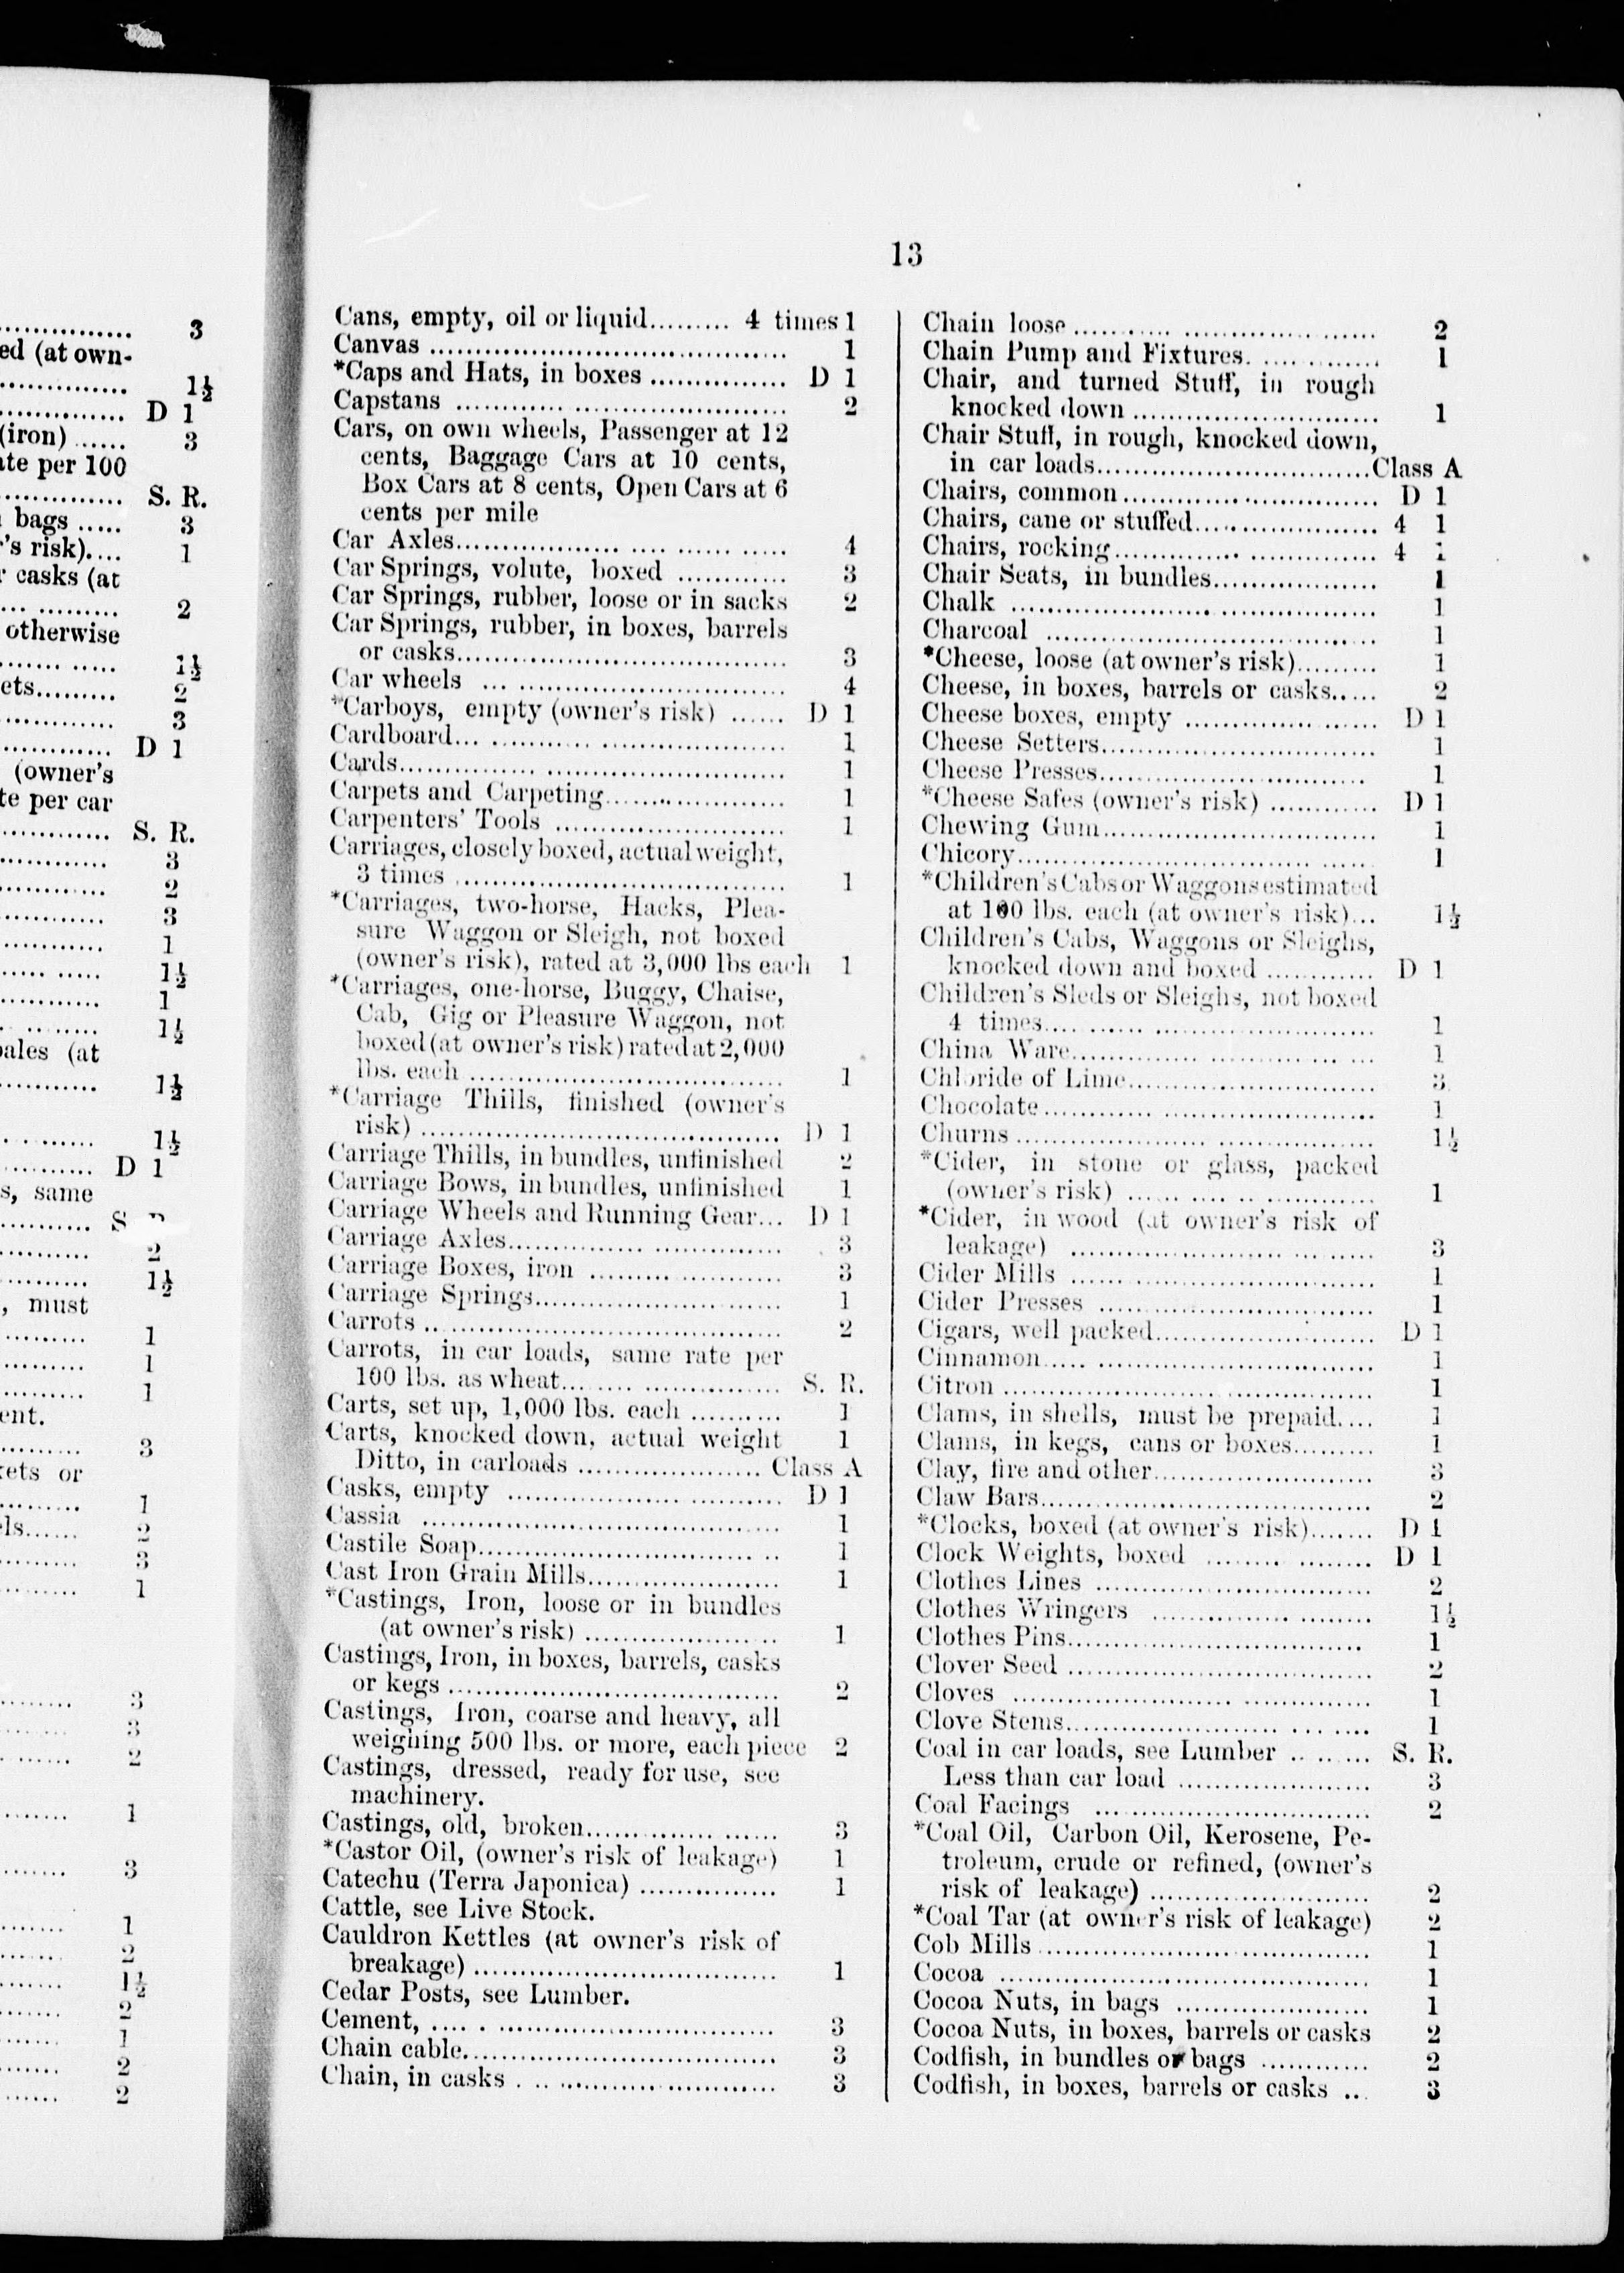 3
ed (at own-
1½
D 1
(iron) ...... 3
ate per 100
S. R.
bags ..... 3
's risk).... 1
r casks (at
2
otherwise
1½
ets......... 2
3
D 1
(owner's
te per car
S. R.
3
2
3
1
1½
1
1½
bales (at
1½
1½
D 1
s, same
S
2
1½
, must
1
1
1
ent.
3
kets or
1
els...... 2
3
1
3
3
2
1
3
1
2
1½
2
1
2
2
13
Cans, empty, oil or liquid......... 4 times 1
Canvas ........ 1
*Caps and Hats, in boxes ............... D 1
Capstans ........ 2
Cars, on own wheels, Passenger at 12
cents, Baggage Cars at 10 cents,
Box Cars at 8 cents, Open Cars at 6
cents per mile
Car Axles........ 4
Car Springs, volute, boxed ............ 3
Car Springs, rubber, loose or in sacks 2
Car Springs, rubber, in boxes, barrels
or casks........ 3
Car wheels ........ 4
*Carboys, empty (owner's risk) ...... D 1
Cardboard........ 1
Cards........ 1
Carpets and Carpeting........ 1
Carpenters' Tools ........ 1
Carriages, closely boxed, actual weight,
3 times ........ 1
*Carriages, two-horse, Hacks, Plea-
sure Waggon or Sleigh, not boxed
(owner's risk), rated at 3,000 lbs each 1
*Carriages, one-horse, Buggy, Chaise,
Cab, Gig or Pleasure Waggon, not
boxed (at owner's risk) rated at 2,000
lbs. each ........ 1
*Carriage Thills, finished (owner's
risk) ........ D 1
Carriage Thills, in bundles, unfinished 2
Carriage Bows, in bundles, unfinished 1
Carriage Wheels and Running Gear... D 1
Carriage Axles........ 3
Carriage Boxes, iron ........ 3
Carriage Springs........ 1
Carrots ........ 2
Carrots, in car loads, same rate per
100 lbs. as wheat........ S. R.
Carts, set up, 1,000 lbs. each .......... 1
Carts, knocked down, actual weight 1
Ditto, in carloads ........ Class A
Casks, empty ........ D 1
Cassia ........ 1
Castile Soap........ 1
Cast Iron Grain Mills........ 1
*Castings, Iron, loose or in bundles
(at owner's risk) ........ 1
Castings, Iron, in boxes, barrels, casks
or kegs ........ 2
Castings, Iron, coarse and heavy, all
weighing 500 lbs. or more, each piece 2
Castings, dressed, ready for use, see
machinery.
Castings, old, broken........ 3
*Castor Oil, (owner's risk of leakage) 1
Catechu (Terra Japonica) ............... 1
Cattle, see Live Stock.
Cauldron Kettles (at owner's risk of
breakage) ........ 1
Cedar Posts, see Lumber.
Cement, ........ 3
Chain cable........ 3
Chain, in casks ........ 3
Chain loose ........ 2
Chain Pump and Fixtures........ 1
Chair, and turned Stuff, in rough
knocked down ........ 1
Chair Stuff, in rough, knocked down,
in car loads........ Class A
Chairs, common........ D 1
Chairs, cane or stuffed........ 4 1
Chairs, rocking........ 4 1
Chair Seats, in bundles........ 1
Chalk ........ 1
Charcoal ........ 1
*Cheese, loose (at owner's risk)......... 1
Cheese, in boxes, barrels or casks..... 2
Cheese boxes, empty ........ D 1
Cheese Setters........ 1
Cheese Presses........ 1
*Cheese Safes (owner's risk) ............ D 1
Chewing Gum........ 1
Chicory........ 1
*Children's Cabs or Waggons estimated
at 100 lbs. each (at owner's risk)... 1½
Children's Cabs, Waggons or Sleighs,
knocked down and boxed ............ D 1
Children's Sleds or Sleighs, not boxed
4 times........ 1
China Ware........ 1
Chloride of Lime........ 3
Chocolate........ 1
Churns ........ 1½
*Cider, in stone or glass, packed
(owner's risk) ........ 1
*Cider, in wood (at owner's risk of
leakage) ........ 3
Cider Mills ........ 1
Cider Presses ........ 1
Cigars, well packed........ D 1
Cinnamon........ 1
Citron ........ 1
Clams, in shells, must be prepaid.... 1
Clams, in kegs, cans or boxes......... 1
Clay, fire and other........ 3
Claw Bars........ 2
*Clocks, boxed (at owner's risk)....... D 1
Clock Weights, boxed ........ D 1
Clothes Lines ........ 2
Clothes Wringers ........ 1½
Clothes Pins........ 1
Clover Seed ........ 2
Cloves ........ 1
Clove Stems........ 1
Coal in car loads, see Lumber ........ S. R.
Less than car load ........ 3
Coal Facings ........ 2
*Coal Oil, Carbon Oil, Kerosene, Pe-
troleum, crude or refined, (owner's
risk of leakage) ........ 2
*Coal Tar (at owner's risk of leakage) 2
Cob Mills ........ 1
Cocoa ........ 1
Cocoa Nuts, in bags ........ 1
Cocoa Nuts, in boxes, barrels or casks 2
Codfish, in bundles or bags ............ 2
Codfish, in boxes, barrels or casks ... 3